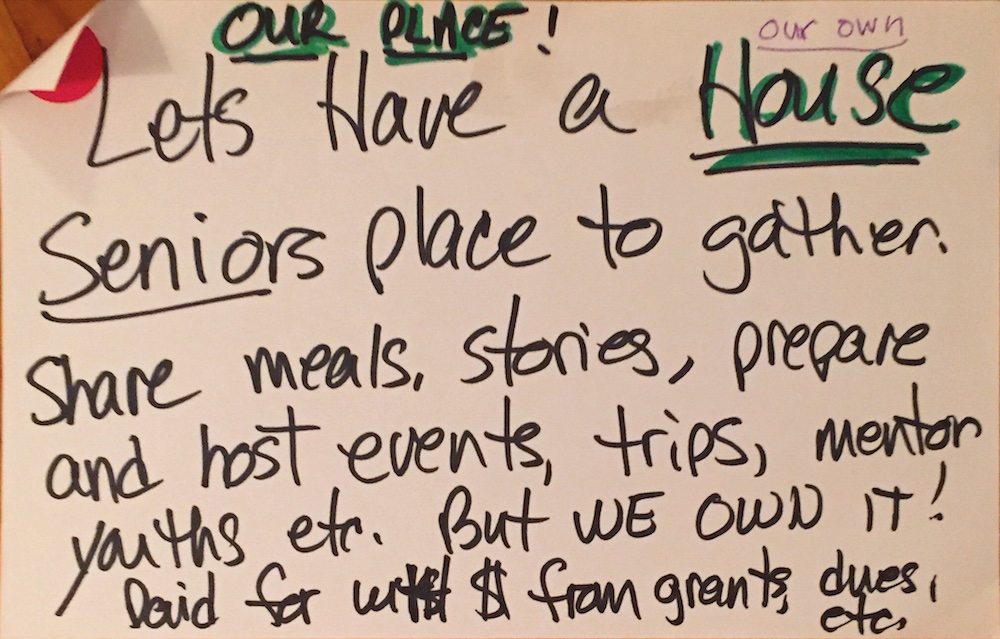 OUR PLACE!
our own
Lets Have a House
Seniors place to gather.
Share meals, stories, prepare
and host events, trips, mentor
youths etc. But WE OWN IT!
Paid for with $ from grants, dues,
etc.